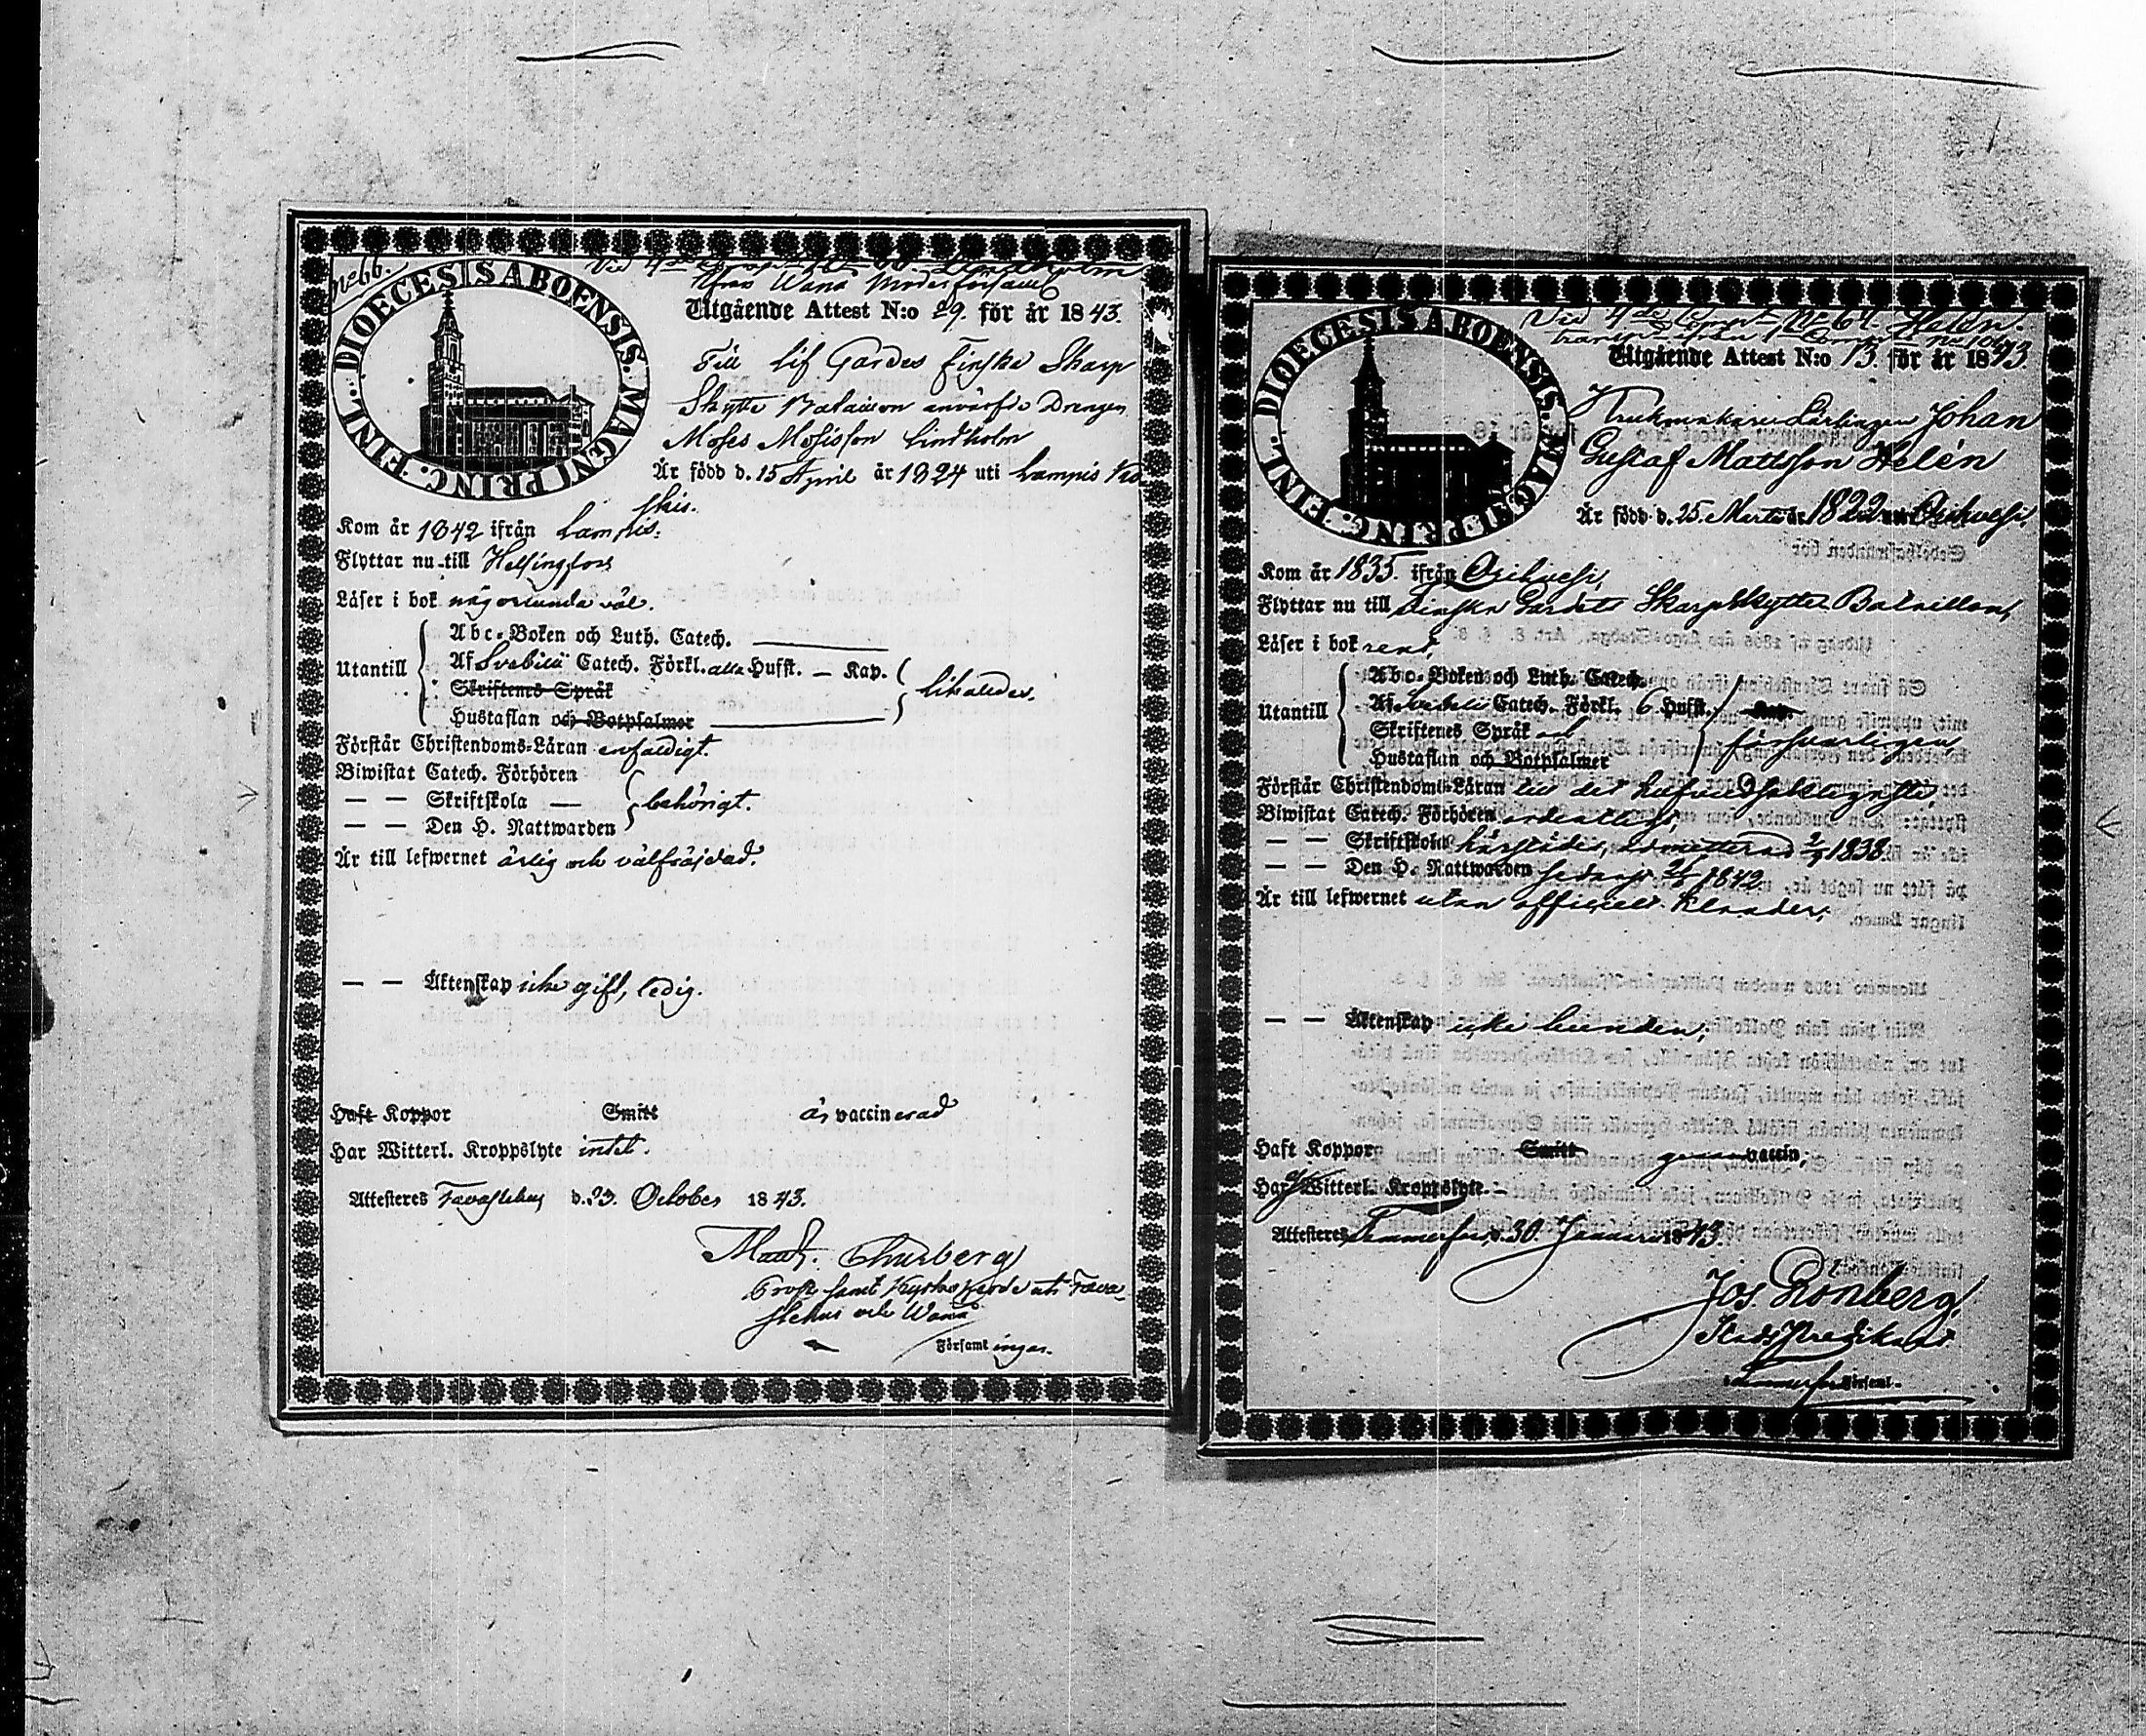 No 66.
Vid 4de Lindholm
från Wånå Moderförsaml
DIOECESIS ABOENSIS. MAGNI PRINC. FINL.
Utgående Attest N:o 29. för år 1843.
Till Lif Gardes Finska Skarp
Skytte Bataillon anvärfde Drengen
Moses Mosisson Lindholm
Är född d. 15 April år 1824 uti Lampis Kro
skis.
Kom år 1842 ifrån Lampis.
Flyttar nu till Helsingfors
Läser i bok någorlunda väl.
Abc-Boken och Luth. Catech.
Utantill Af Svebilii Catech. Förkl. alla Hufst. — Kap. likaledes.
Skriftenes Språk
Hustaflan och Botpsalmer
Förstår Christendoms-Läran enfaldigt.
Biwistat Catech. Förhören
— — Skriftskola — behörigt.
— — Den H. Nattwarden
Är till lefwernet ärlig och välfräjdad.
— — Äktenskap icke gift, ledig.
Haft Koppor Smitt är vaccinerad
Har Witterl. Kroppslyte intet.
Attesteres Tavastehus d. 23. October 1843.
Thurberg
Prost samt Kyrkoherde uti Tava-
stehus och Wånå
Församlingar.
Vid 4de Comp. No 64. Helén.
transp. från 1 Comp. No 106
DIOECESIS ABOENSIS. MAGNI PRINC. FINL.
Utgående Attest N:o 13. för år 1843.
Krukmakare Lärlingen Johan
Gustaf Mattsson Helén
Är född d. 25. Martii år 1822 uti Orihvesi.
Kom år 1835. ifrån Orihvesi,
Flyttar nu till Finska Gardets Skarpskytte Bataillon,
Läser i bok rent,
Abc-Boken och Luth. Catech.
Utantill Af Svebilii Catech. Förkl. 6 Hufst. Kap.
Skriftenes Språk och försvarligen,
Hustaflan och Botpsalmer
Förstår Christendoms-Läran till det hufvudsakligaste,
Biwistat Catech. Förhören ordentligt,
— — Skriftskola härstädes, admitterad 1838.
— — Den H. Nattwarden sednast 1842.
Är till lefwernet utan officielt klander,
— — Äktenskap icke bunden,
Haft Koppor Smitt genom vaccin,
Har Witterl. Kroppslyte —
Attesteres Tammerfors, d. 30. Januarii 1843.
Jos. Grönberg,
Stads Predikant.
Tammerfors Församl.